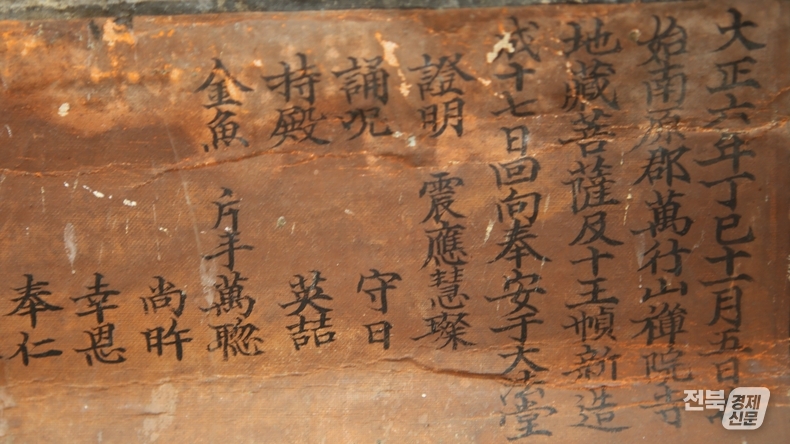 大正六年丁巳十一月五日
始南原郡萬行山禪院寺
地藏菩薩及十王幀新造
成十七日回向奉安于大法堂
證明 震應慧璨
誦呪 守日
持殿 英喆
金魚 片手萬聡
尚旿
幸恩
奉仁
전북
경제
신문